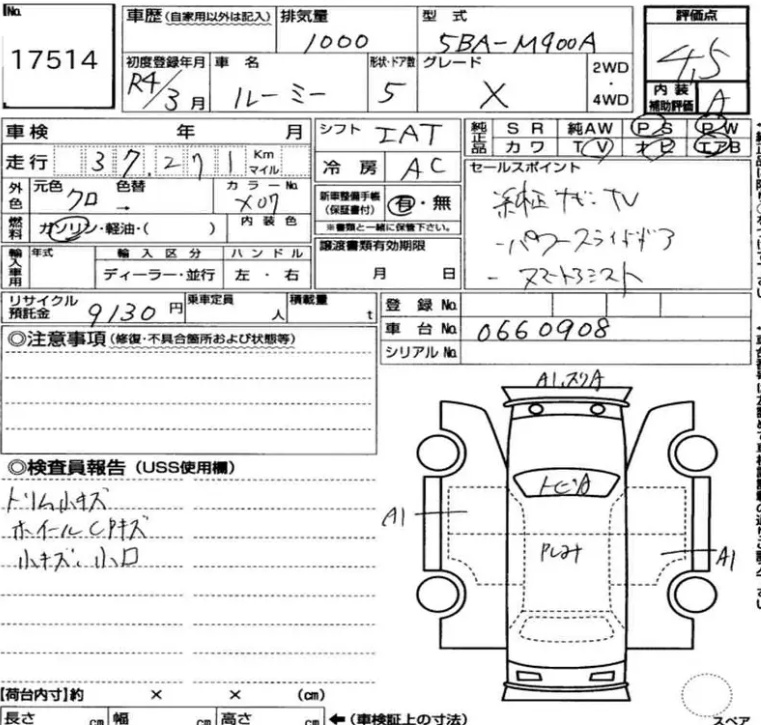 No. 17514
車歴(自家用以外は記入) 排気量 1000 型式 5BA-M900A 評価点 4,5
初度登録年月 R4/3月 車名 ルーミー 形状・ドア数 5 グレード X 2WD・4WD 内装補助評価 A
車検 年 月 シフト IAT 純正品 SR 純AW PS PW
走行 37,271 Km マイル 冷房 AC カワ TV ナビ エアB
外色 元色 クロ → 色替 カラーNo. X07
新車整備手帳(保証書付) 有・無
※書類と一緒に保管下さい。
セールスポイント
純正ナビ-TV
-パワースライドドア
- スマートアシスト
燃料 ガソリン・軽油・( ) 内装色
輸入車用 年式 輸入区分 ハンドル
ディーラー・並行 左・右
譲渡書類有効期限
月 日
リサイクル預託金 9130円 乗車定員 人 積載量 t
登録No.
車台No. 0660908
シリアルNo.
◎注意事項(修復・不具合箇所および状態等)
◎検査員報告(USS使用欄)
トリム小キズ
ホイールCPキズ
小キズ、小凹
A1,スリA
トビA
A1
A1
【荷台内寸】約 × × (cm)
長さ cm 幅 cm 高さ cm ←(車検証上の寸法)
スペア